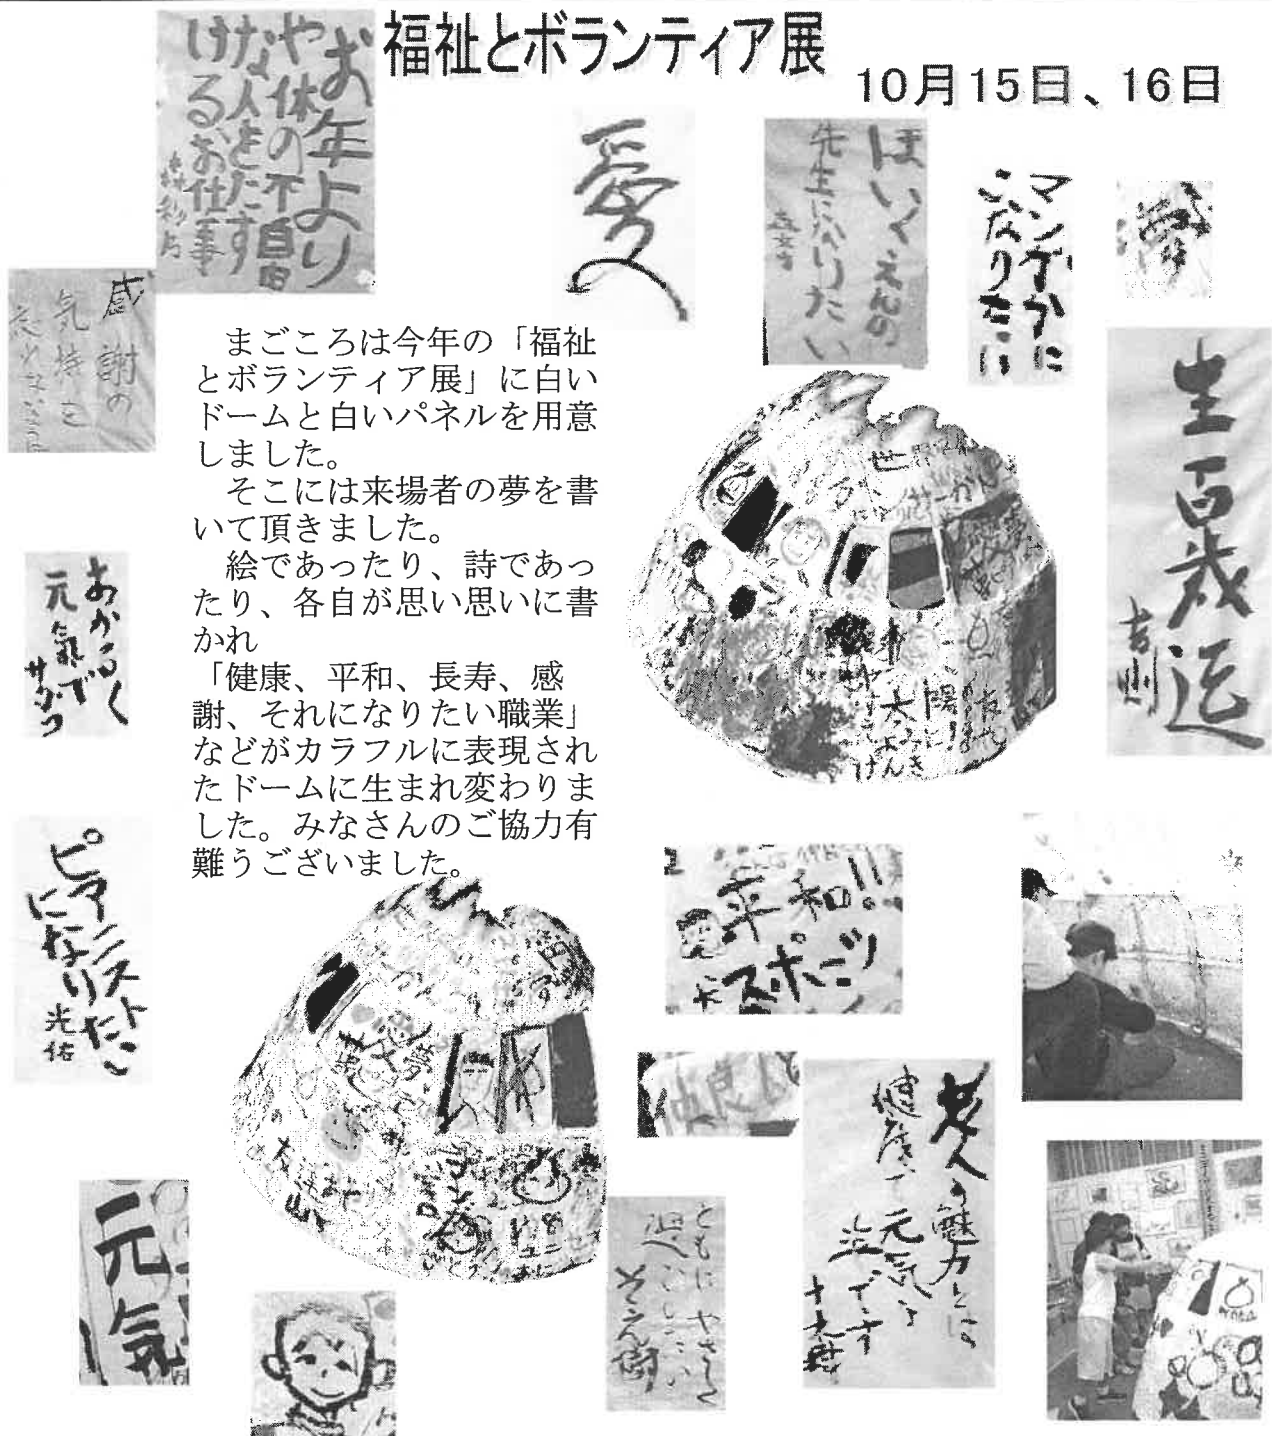 福祉とボランティア展
10月15日、16日
お年より
や体の不自由
な人をたす
けるお仕事
愛
ほいくえんの
先生になりたい
マンガかに
なりたい
夢
感謝の
気持を
忘れない
生百歳迄
吉州
まごころは今年の「福祉
とボランティア展」に白い
ドームと白いパネルを用意
しました。
そこには来場者の夢を書
いて頂きました。
絵であったり、詩であっ
たり、各自が思い思いに書
かれ
「健康、平和、長寿、感
謝、それになりたい職業」
などがカラフルに表現され
たドームに生まれ変わりま
した。みなさんのご協力有
難うございました。
あかるく
元氣で
世界
太陽
げんき
ピアニスト
になりたい
光佑
平和!!
スポーツ
夢
友達
仲良く
老人の魅力とは
健康で元気な
姿です
ともにやさしく
元気